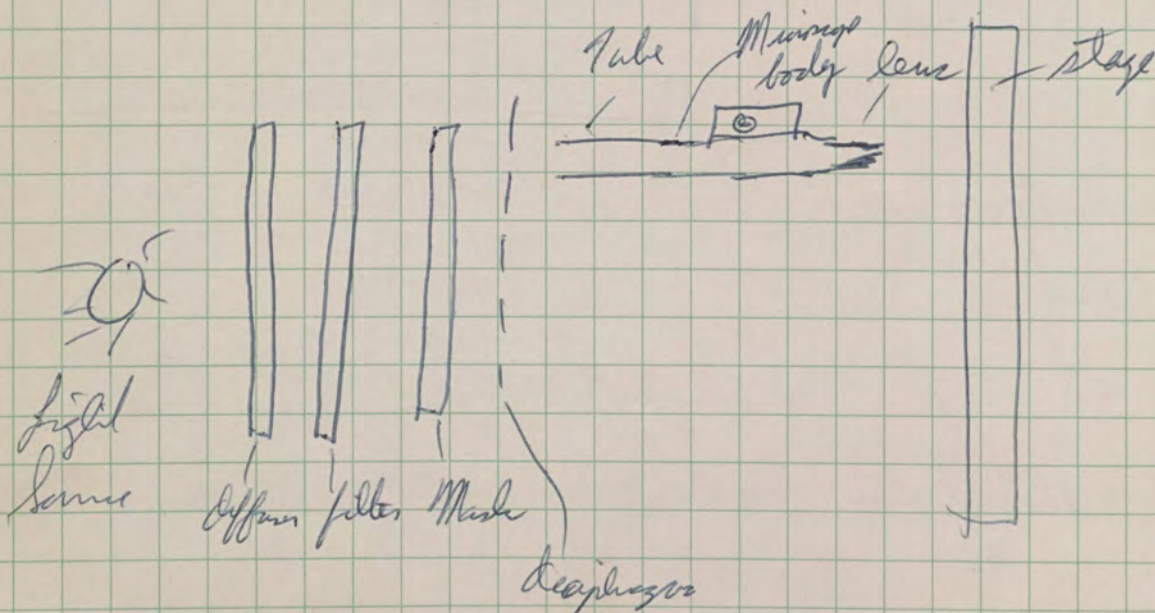 Tube
Microscope
body
lens
stage
Light
Source
diffuser
filter
Mask
diaphragm